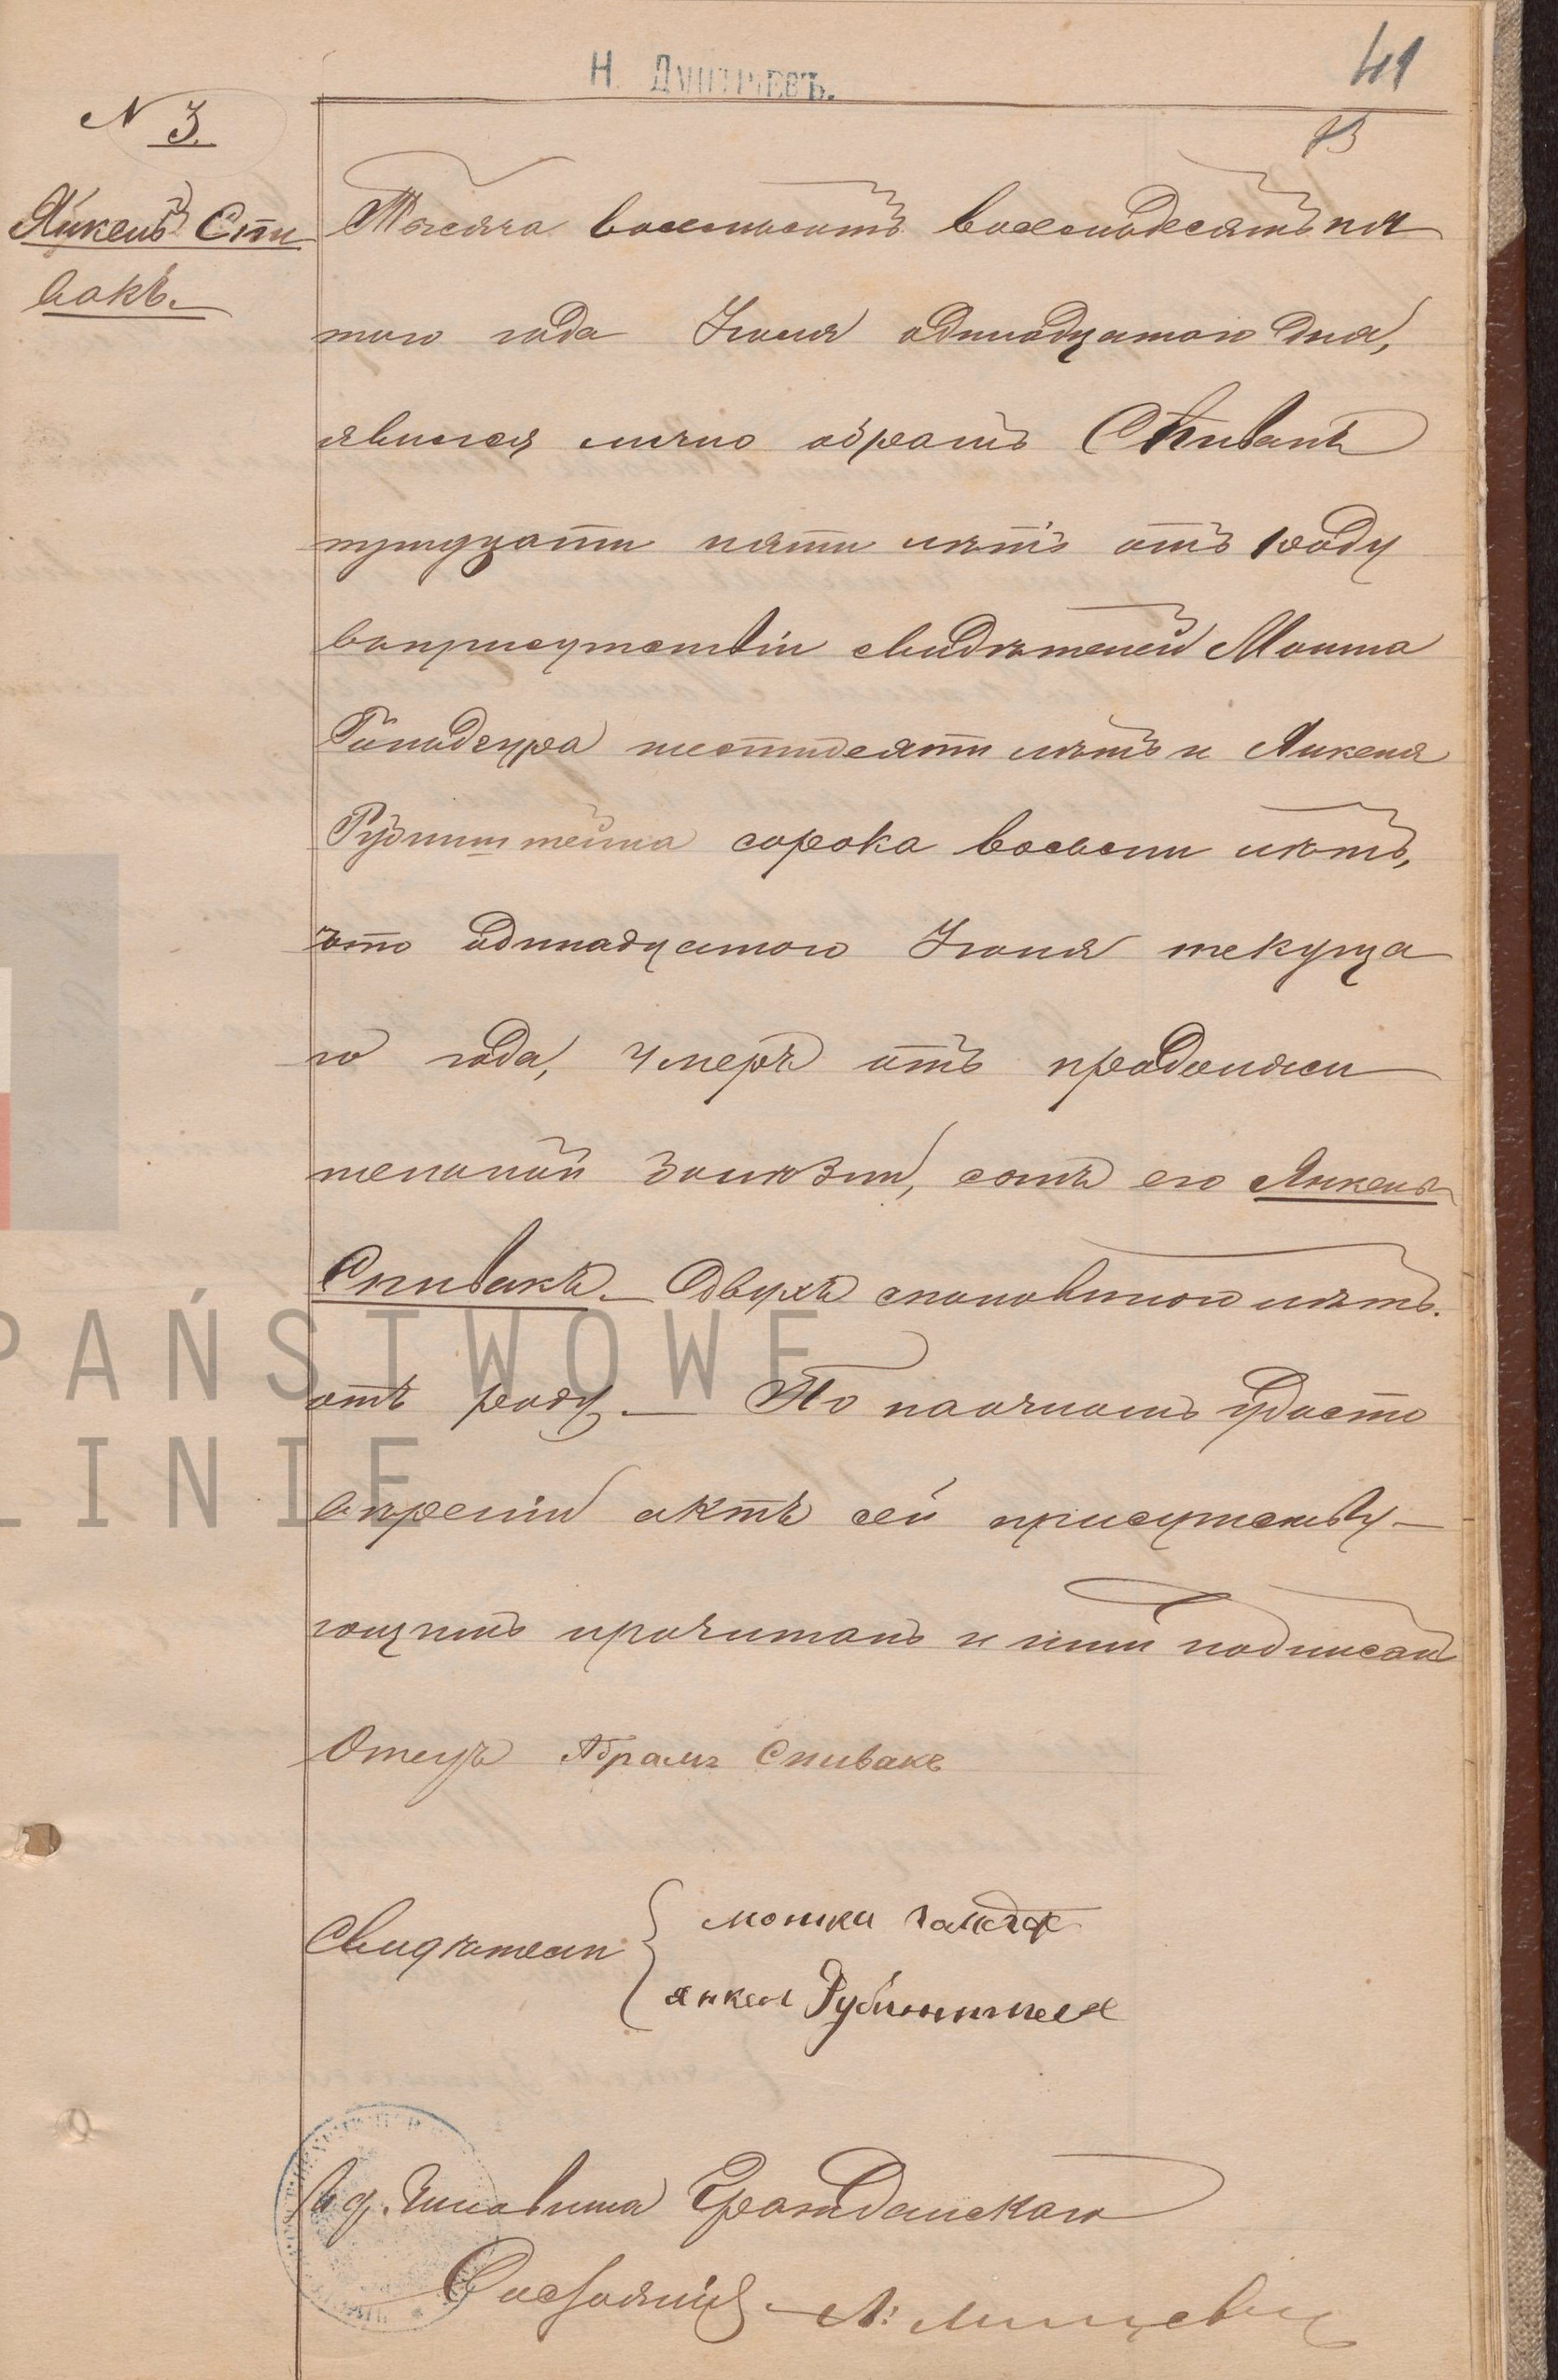 Н. Дмитріевъ.
41
N 3.
Янкель Спи
вакъ.
Тысяча восемьсотъ восемьдесятъ пя
того года Іюня одинадцатого дня,
явился лично Абрамъ Спивакъ
тридцати пяти лѣтъ отъ роду
воприсутствіи свидѣтелей Мошка
Гольдгура шестидесяти лѣтъ и Янкеля
Рубинштейна сорока восьми лѣтъ,
что одинадцатого Іюня текуща
го года, умеръ отъ продолжи
тельной болѣзни, сынъ его Янкель
Спивакъ. Двухъ споловиною лѣтъ.
отъ роду. По наочномъ удосто
вѣреніи актъ сей присутству-
ющимъ прочитанъ и ими подписан
Отецъ Абрамъ Спивакъ
Свидѣтели
мошки
янкел Рубинштеин
Гражданскаго
Состоянія
PAŃSTWOWE
LINIE